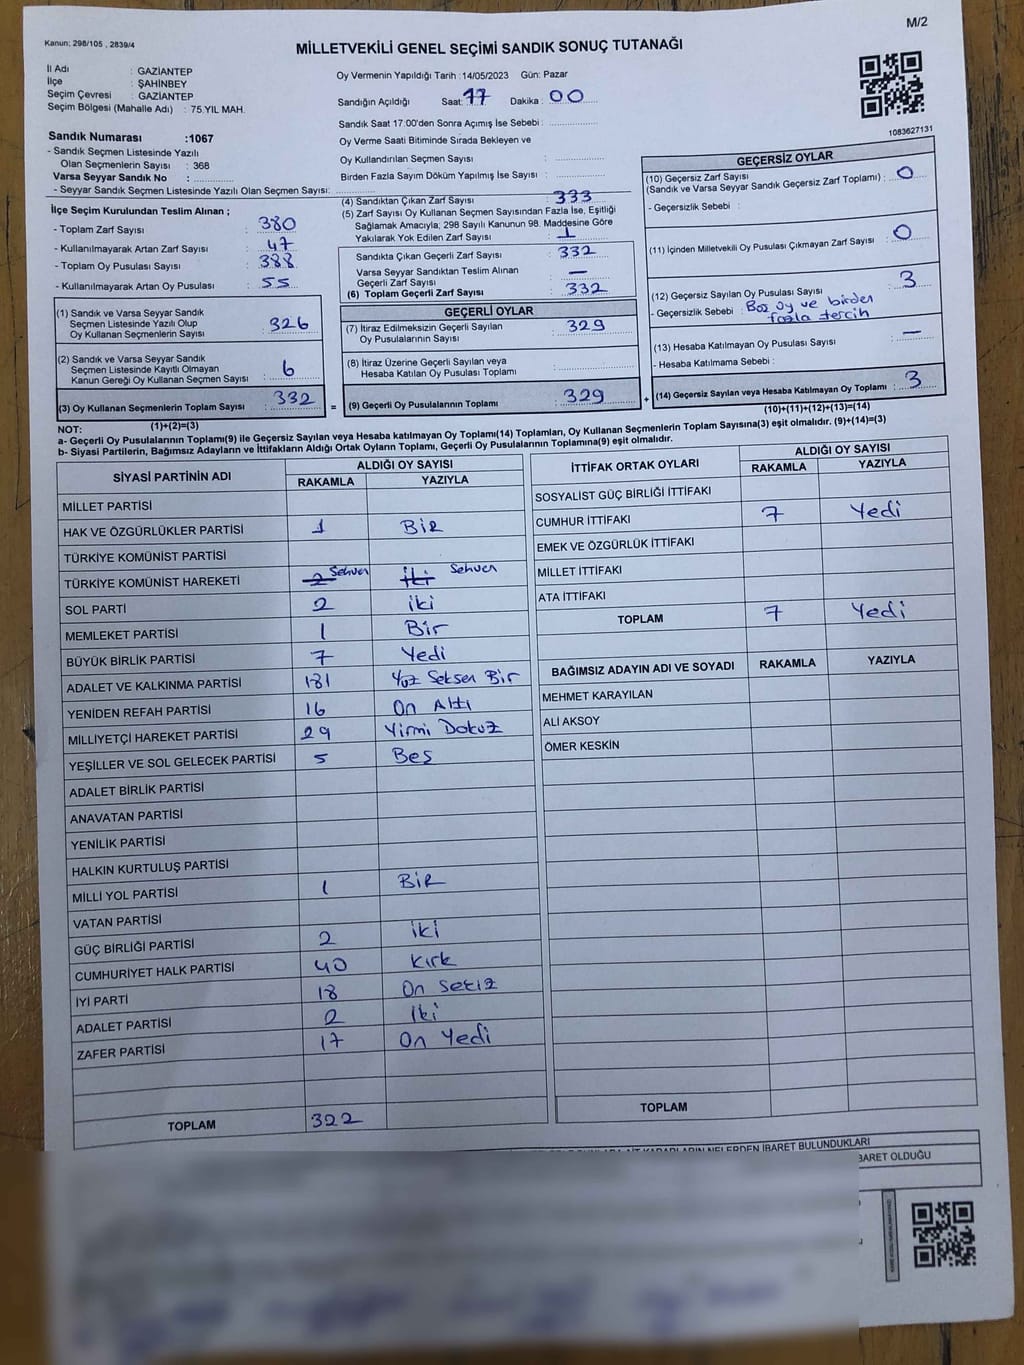 M/2
Kanun; 298/105 , 2839/4
MİLLETVEKİLİ GENEL SEÇİMİ SANDIK SONUÇ TUTANAĞI
İl Adı : GAZİANTEP
İlçe : ŞAHİNBEY
Seçim Çevresi : GAZİANTEP
Seçim Bölgesi (Mahalle Adı) : 75.YIL MAH.
Sandık Numarası :1067
- Sandık Seçmen Listesinde Yazılı
Olan Seçmenlerin Sayısı : 368
Varsa Seyyar Sandık No :
- Seyyar Sandık Seçmen Listesinde Yazılı Olan Seçmen Sayısı:
Oy Vermenin Yapıldığı Tarih :14/05/2023 Gün: Pazar
Sandığın Açıldığı Saat: 17 Dakika : 00
Sandık Saat 17:00'den Sonra Açımış İse Sebebi :
Oy Verme Saati Bitiminde Sırada Bekleyen ve
Oy Kullandırılan Seçmen Sayısı :
Birden Fazla Sayım Döküm Yapılmış İse Sayısı :
1083627131
İlçe Seçim Kurulundan Teslim Alınan ;
- Toplam Zarf Sayısı : 380
- Kullanılmayarak Artan Zarf Sayısı : 47
- Toplam Oy Pusulası Sayısı : 388
- Kullanılmayarak Artan Oy Pusulası : 55
(1) Sandık ve Varsa Seyyar Sandık
Seçmen Listesinde Yazılı Olup
Oy Kullanan Seçmenlerin Sayısı : 326
(2) Sandık ve Varsa Seyyar Sandık
Seçmen Listesinde Kayıtlı Olmayan
Kanun Gereği Oy Kullanan Seçmen Sayısı : 6
(3) Oy Kullanan Seçmenlerin Toplam Sayısı : 332
(1)+(2)=(3)
(4) Sandıktan Çıkan Zarf Sayısı : 333
(5) Zarf Sayısı Oy Kullanan Seçmen Sayısından Fazla İse, Eşitliği
Sağlamak Amacıyla; 298 Sayılı Kanunun 98. Maddesine Göre
Yakılarak Yok Edilen Zarf Sayısı : 1
Sandıkta Çıkan Geçerli Zarf Sayısı : 332
Varsa Seyyar Sandıktan Teslim Alınan
Geçerli Zarf Sayısı : —
(6) Toplam Geçerli Zarf Sayısı : 332
GEÇERLİ OYLAR
(7) İtiraz Edilmeksizin Geçerli Sayılan
Oy Pusulalarının Sayısı : 329
(8) İtiraz Üzerine Geçerli Sayılan veya
Hesaba Katılan Oy Pusulası Toplamı :
= (9) Geçerli Oy Pusulalarının Toplamı : 329
GEÇERSİZ OYLAR
(10) Geçersiz Zarf Sayısı
(Sandık ve Varsa Seyyar Sandık Geçersiz Zarf Toplamı) : 0
- Geçersizlik Sebebi :
(11) İçinden Milletvekili Oy Pusulası Çıkmayan Zarf Sayısı : 0
(12) Geçersiz Sayılan Oy Pusulası Sayısı : 3
- Geçersizlik Sebebi : Boş oy ve birden
fazla tercih
(13) Hesaba Katılmayan Oy Pusulası Sayısı : —
- Hesaba Katılmama Sebebi :
+ (14) Geçersiz Sayılan veya Hesaba Katılmayan Oy Toplamı : 3
(10)+(11)+(12)+(13)=(14)
NOT:
a- Geçerli Oy Pusulalarının Toplamı(9) ile Geçersiz Sayılan veya Hesaba katılmayan Oy Toplamı(14) Toplamları, Oy Kullanan Seçmenlerin Toplam Sayısına(3) eşit olmalıdır. (9)+(14)=(3)
b- Siyasi Partilerin, Bağımsız Adayların ve İttifakların Aldığı Ortak Oyların Toplamı, Geçerli Oy Pusulalarının Toplamına(9) eşit olmalıdır.
SİYASİ PARTİNİN ADI ALDIĞI OY SAYISI
RAKAMLA YAZIYLA
MİLLET PARTİSİ
HAK VE ÖZGÜRLÜKLER PARTİSİ 1 Bir
TÜRKİYE KOMÜNİST PARTİSİ
TÜRKİYE KOMÜNİST HAREKETİ 2 Sehven iki Sehven
SOL PARTİ 2 iki
MEMLEKET PARTİSİ 1 Bir
BÜYÜK BİRLİK PARTİSİ 7 Yedi
ADALET VE KALKINMA PARTİSİ 181 Yüz Seksen Bir
YENİDEN REFAH PARTİSİ 16 On Altı
MİLLİYETÇİ HAREKET PARTİSİ 29 Yirmi Dokuz
YEŞİLLER VE SOL GELECEK PARTİSİ 5 Beş
ADALET BİRLİK PARTİSİ
ANAVATAN PARTİSİ
YENİLİK PARTİSİ
HALKIN KURTULUŞ PARTİSİ
MİLLİ YOL PARTİSİ 1 Bir
VATAN PARTİSİ
GÜÇ BİRLİĞİ PARTİSİ 2 iki
CUMHURİYET HALK PARTİSİ 40 Kırk
İYİ PARTİ 18 On Sekiz
ADALET PARTİSİ 2 İki
ZAFER PARTİSİ 17 On Yedi
TOPLAM 322
İTTİFAK ORTAK OYLARI ALDIĞI OY SAYISI
RAKAMLA YAZIYLA
SOSYALİST GÜÇ BİRLİĞİ İTTİFAKI
CUMHUR İTTİFAKI 7 Yedi
EMEK VE ÖZGÜRLÜK İTTİFAKI
MİLLET İTTİFAKI
ATA İTTİFAKI
TOPLAM 7 Yedi
BAĞIMSIZ ADAYIN ADI VE SOYADI RAKAMLA YAZIYLA
MEHMET KARAYILAN
ALİ AKSOY
ÖMER KESKİN
TOPLAM
NELERDEN İBARET BULUNDUKLARI
BARET OLDUĞU